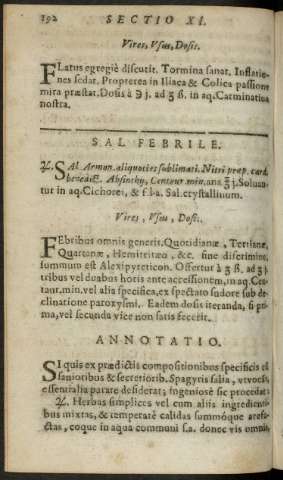 192 SECTIO XI.
Vires, Vsus, Dosis.
FLatus egregiè discutit. Tormina sanat. Inflatio-
nes sedat. Propterea in Iliaca & Colica passione
mira præstat. Dosis à ℈ j. ad ʒ ß. in aq. Carminatiua
nostra.
SAL FEBRILE.
♃. SAl. Armon. aliquoties sublimati. Nitri præp. card.
benedict. Absinthy, Centaur. min. ana ℥ j. Soluan-
tur in aq. Cichorei, & f. l. a. Sal. crystallinum.
Vires, Vsus, Dosis.
FEbribus omnis generis. Quotidianæ, Tertianæ,
Quartanæ, Hemitritæo, &c. sine discrimine,
summum est Alexipyreticon. Offertur à ʒ ß. ad ʒ j.
tribus vel duabus horis ante accessionem, in aq. Cen-
taur. min. vel alia specifica, ex spectato sudore sub de-
clinatione paroxysmi. Eadem dosis iteranda, si pri-
ma, vel secunda vice non satis fecerit.
ANNOTATIO.
SI quis ex prædictis compositionibus specificis ed
sanioribus & secretiorib. Spagyris salia, vtvocãt,
essentialia parare desiderat; ingeniosè sic procedat:
♃. Herbas simplices vel cum aliis ingredienti-
bus mixtas, & temperatè calidas summóque arefa-
ctas, coque in aqua communi s.a. donec vis omnis,